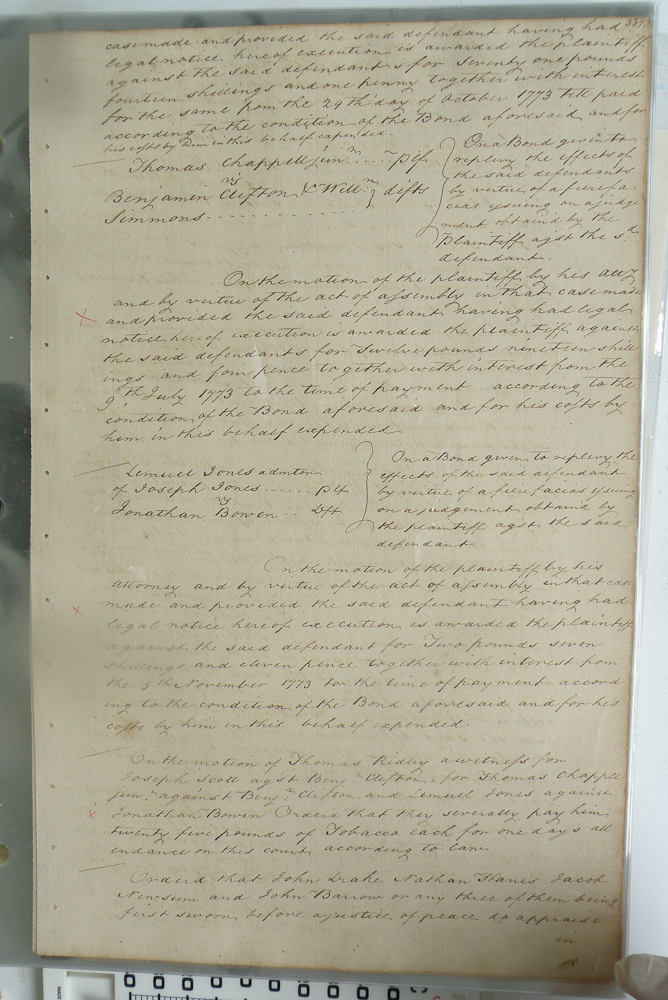 337
case made and provided the said defendant having had
legal notice hereof execution is awarded the plaintiff
against the said defendants for Seventy one pounds
fourteen shillings and one penny together with interest
for the same from the 29th day of October 1773 till paid
according to the condition of the Bond aforesaid and for
his costs by him in this behalf expended.
Thomas Chappell junr. plf
vs
Benjamen Clifton & Willm defts
Simmons
On a Bond given to
replevy the effects of
the said defendants
by virtue of a fierefa
cias yssuing on a judge
ment obtaind by the
Plaintiff agst the sd.
defendant.
On the motion of the plaintiff by his atty
and by virtue of the act of assembly in that case made
and provided the said defendant having had legal
notice hereof execution is awarded the plaintiff against
the said defendants for Twelve pounds nineteen shill
ings and four pence together with interest from the
9th July 1773 to the time of payment according to the
condition of the Bond aforesaid and for his costs by
him in this behalf expended
Lemuel Jones admtor
of Joseph Jones ...... plf
vs
Jonathan Bowen .. Dft
On a Bond given to replevy the
effects of the said defendant
by virtue of a fierefacias yssuing
on a judgement obtaind by
the plaintiff agst the said
defendant
On the motion of the plaintiff by his
attorney and by virtue of the act of assembly in that case
made and provided the said defendant having had
legal notice hereof execution is awarded the plaintiff
against the said defendant for Two pounds seven
shillings and eleven pence together with interest from
the 5th November 1773 to the time of payment accord
ing to the condition of the Bond aforesaid and for his
costs by him in this behalf expended.
On the motion of Thomas Ridley a witness for
Joseph Scott agst Benjn Clifton, for Thomas Chapple
junr. against Benjn. Clifton and Lemuel Jones against
Jonathan Bowen Orderd that they severally pay him
twenty five pounds of Tobacco each for one days att
endance on this court according to law.
Orderd that John Drake Nathan Harris Jacob
Newsum and John Barrow or any three of them being
first sworn before a justice of peace do appraise